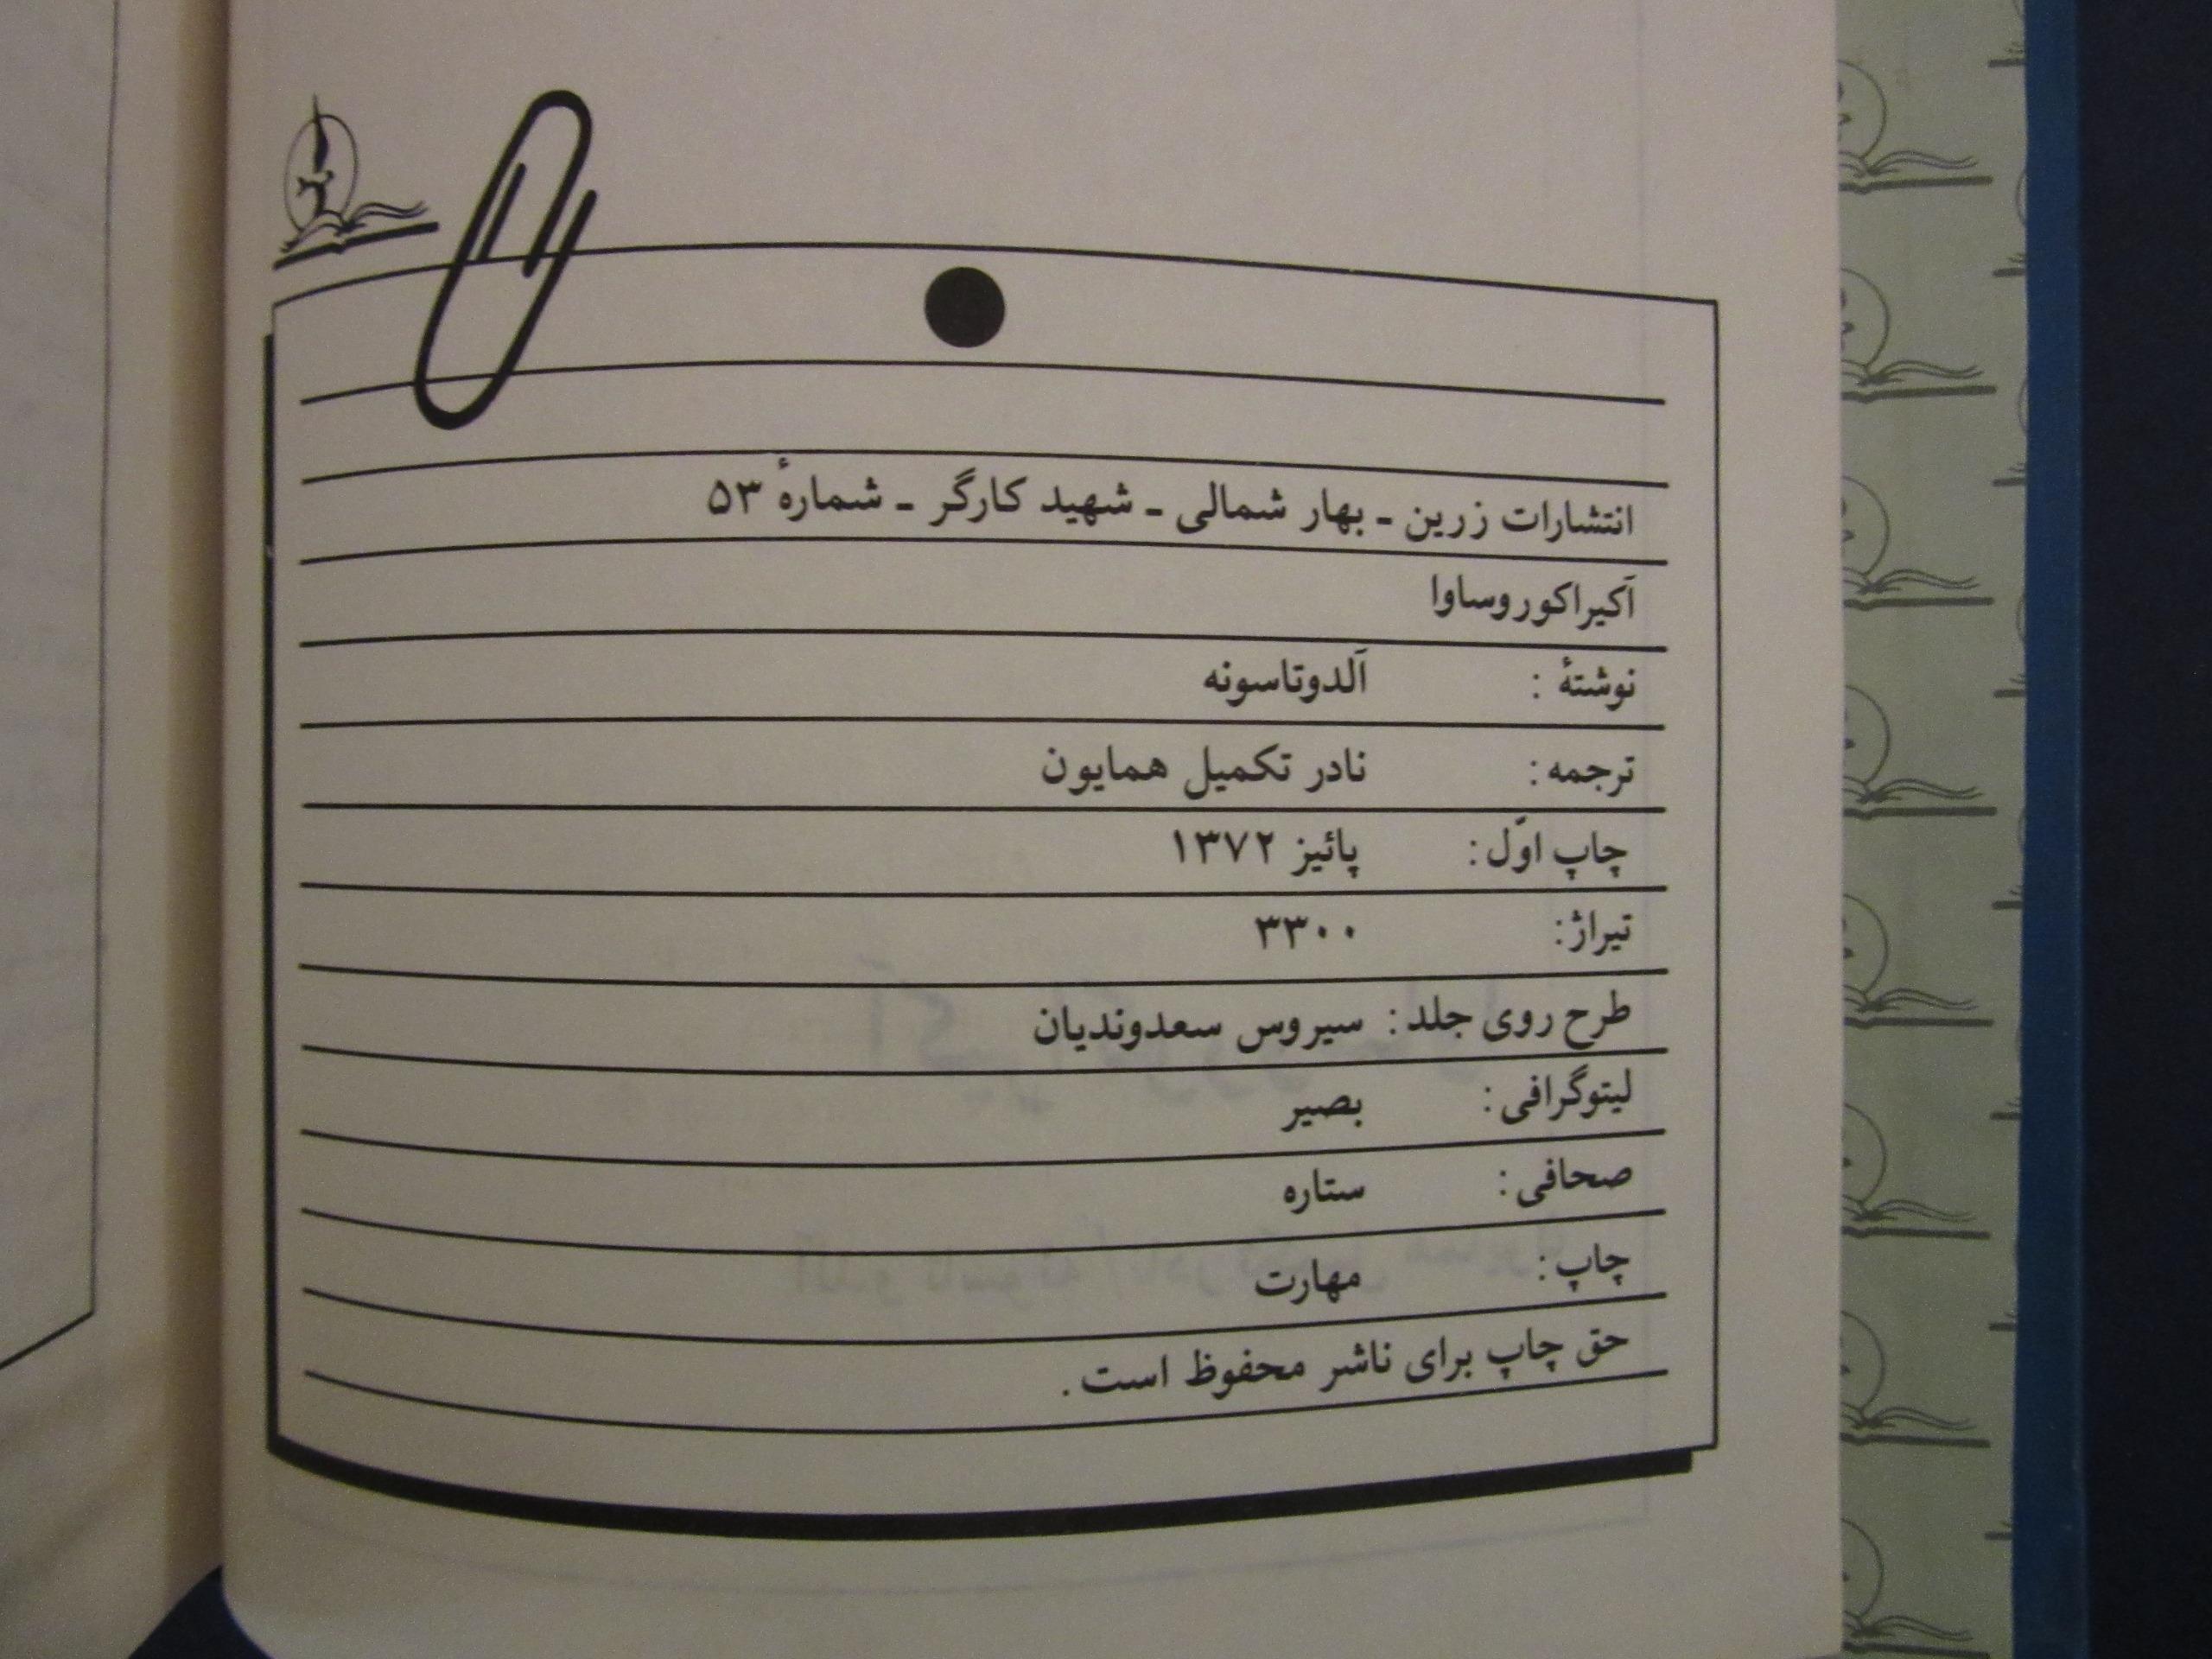 انتشارات زرین ـ بهار شمالی ـ شهید کارگر ـ شمارهٔ ۵۳
آکیراکوروساوا
نوشتهٔ : آلدوتاسونه
ترجمه: نادر تکمیل همایون
چاپ اوّل: پائیز ۱۳۷۲
تیراژ: ۳۳۰۰
طرح روی جلد: سیروس سعدوندیان
لیتوگرافی: بصیر
صحافی: ستاره
چاپ: مهارت
حق چاپ برای ناشر محفوظ است.